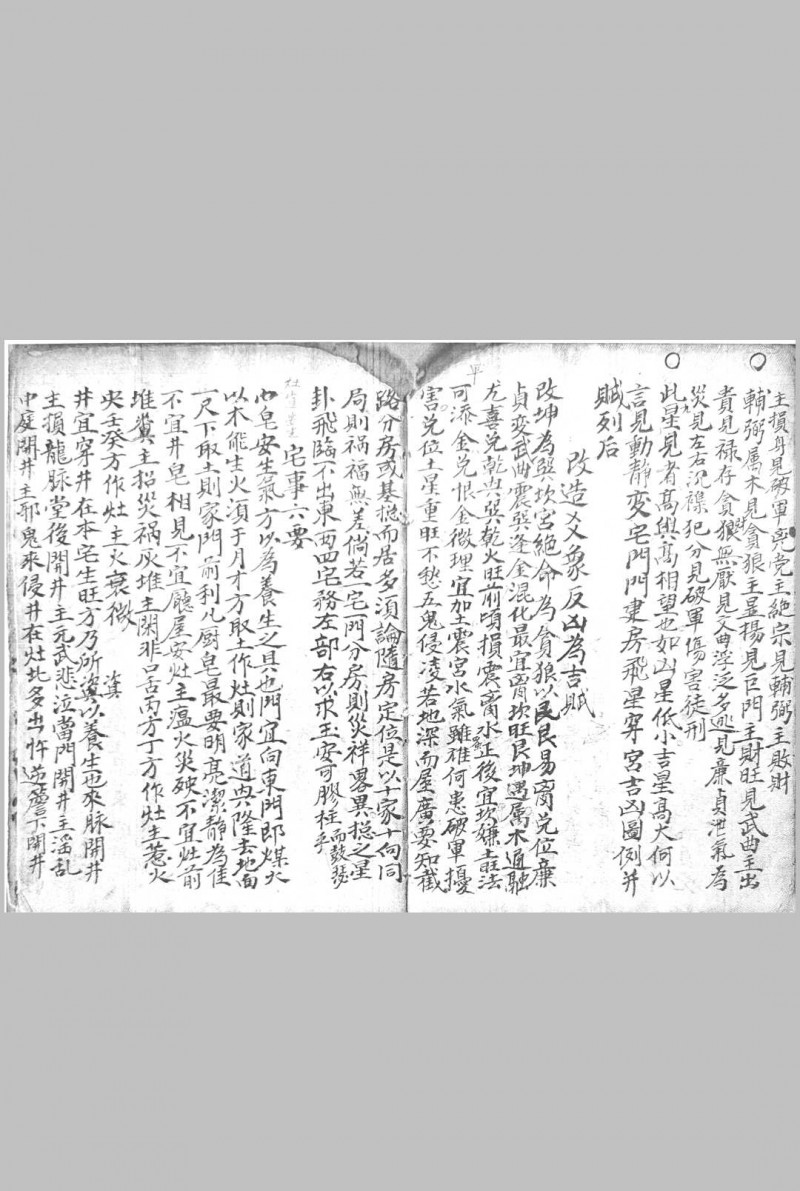 主損身見破軍兇党主絶宗見輔弼主敗財
輔弼屬木見貪狼主显揚見巨門主財旺見武曲主出
貴見禄存貪狼無厭見文曲浮泛名逃見廉貞泄氣為
災見左右沉襍犯分見破軍傷害徒刑
此星見者高與高相望也如凶星低小吉星高大何以
言見動靜変宅門門吏房飛星穿宮吉凶圖例并
賦列后
改造爻象反凶為吉賦
改坤為巽坎宮絶命為貪狼以艮艮易离兑位廉
貞变武曲震巽逢金混化最宜离坎旺艮坤遇属木通融
尤喜兑乾與巽乾火旺前頃損震离水正後宜坎嫌土註法
可添金兑恨金微理宜加土震宮水氣雖碓何患破軍擾
害兑位土星重旺不愁五鬼侵凌若地深而屋廣要知截
路分房或基搃而居多須論隨房定位是以十家十向同
局則祸福無差倘若一宅一門分房則災祥畧異搃之星
卦飛臨不出東西四宅務左部右以求玉安可膠柱而鼓瑟乎
宅事六要
内皂安生氣方以為養生之具也門宜向東門郎煤火
以木能生火須于月才方取土作灶則家道興隆去地面
一尺下取土則家門前利凡厨皂最要明亮潔靜為佳
不宜井皂相見不宜廳屋安灶主瘟火災殃不宜灶前
堆糞主招災禍灰堆主閑非口舌丙方丁方作灶主惹火
央壬癸方作灶主火衰微
井宜穿井在本宅生旺方乃所滋以養生也來脉開井
主損龍脉堂後開井主元武悲泣當門開井主滛乱
中庭開井主邪鬼來侵井在灶北多出忤逆簷下開井